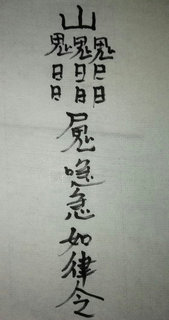 山鬼鬼鬼日日日日日日喼急如律令